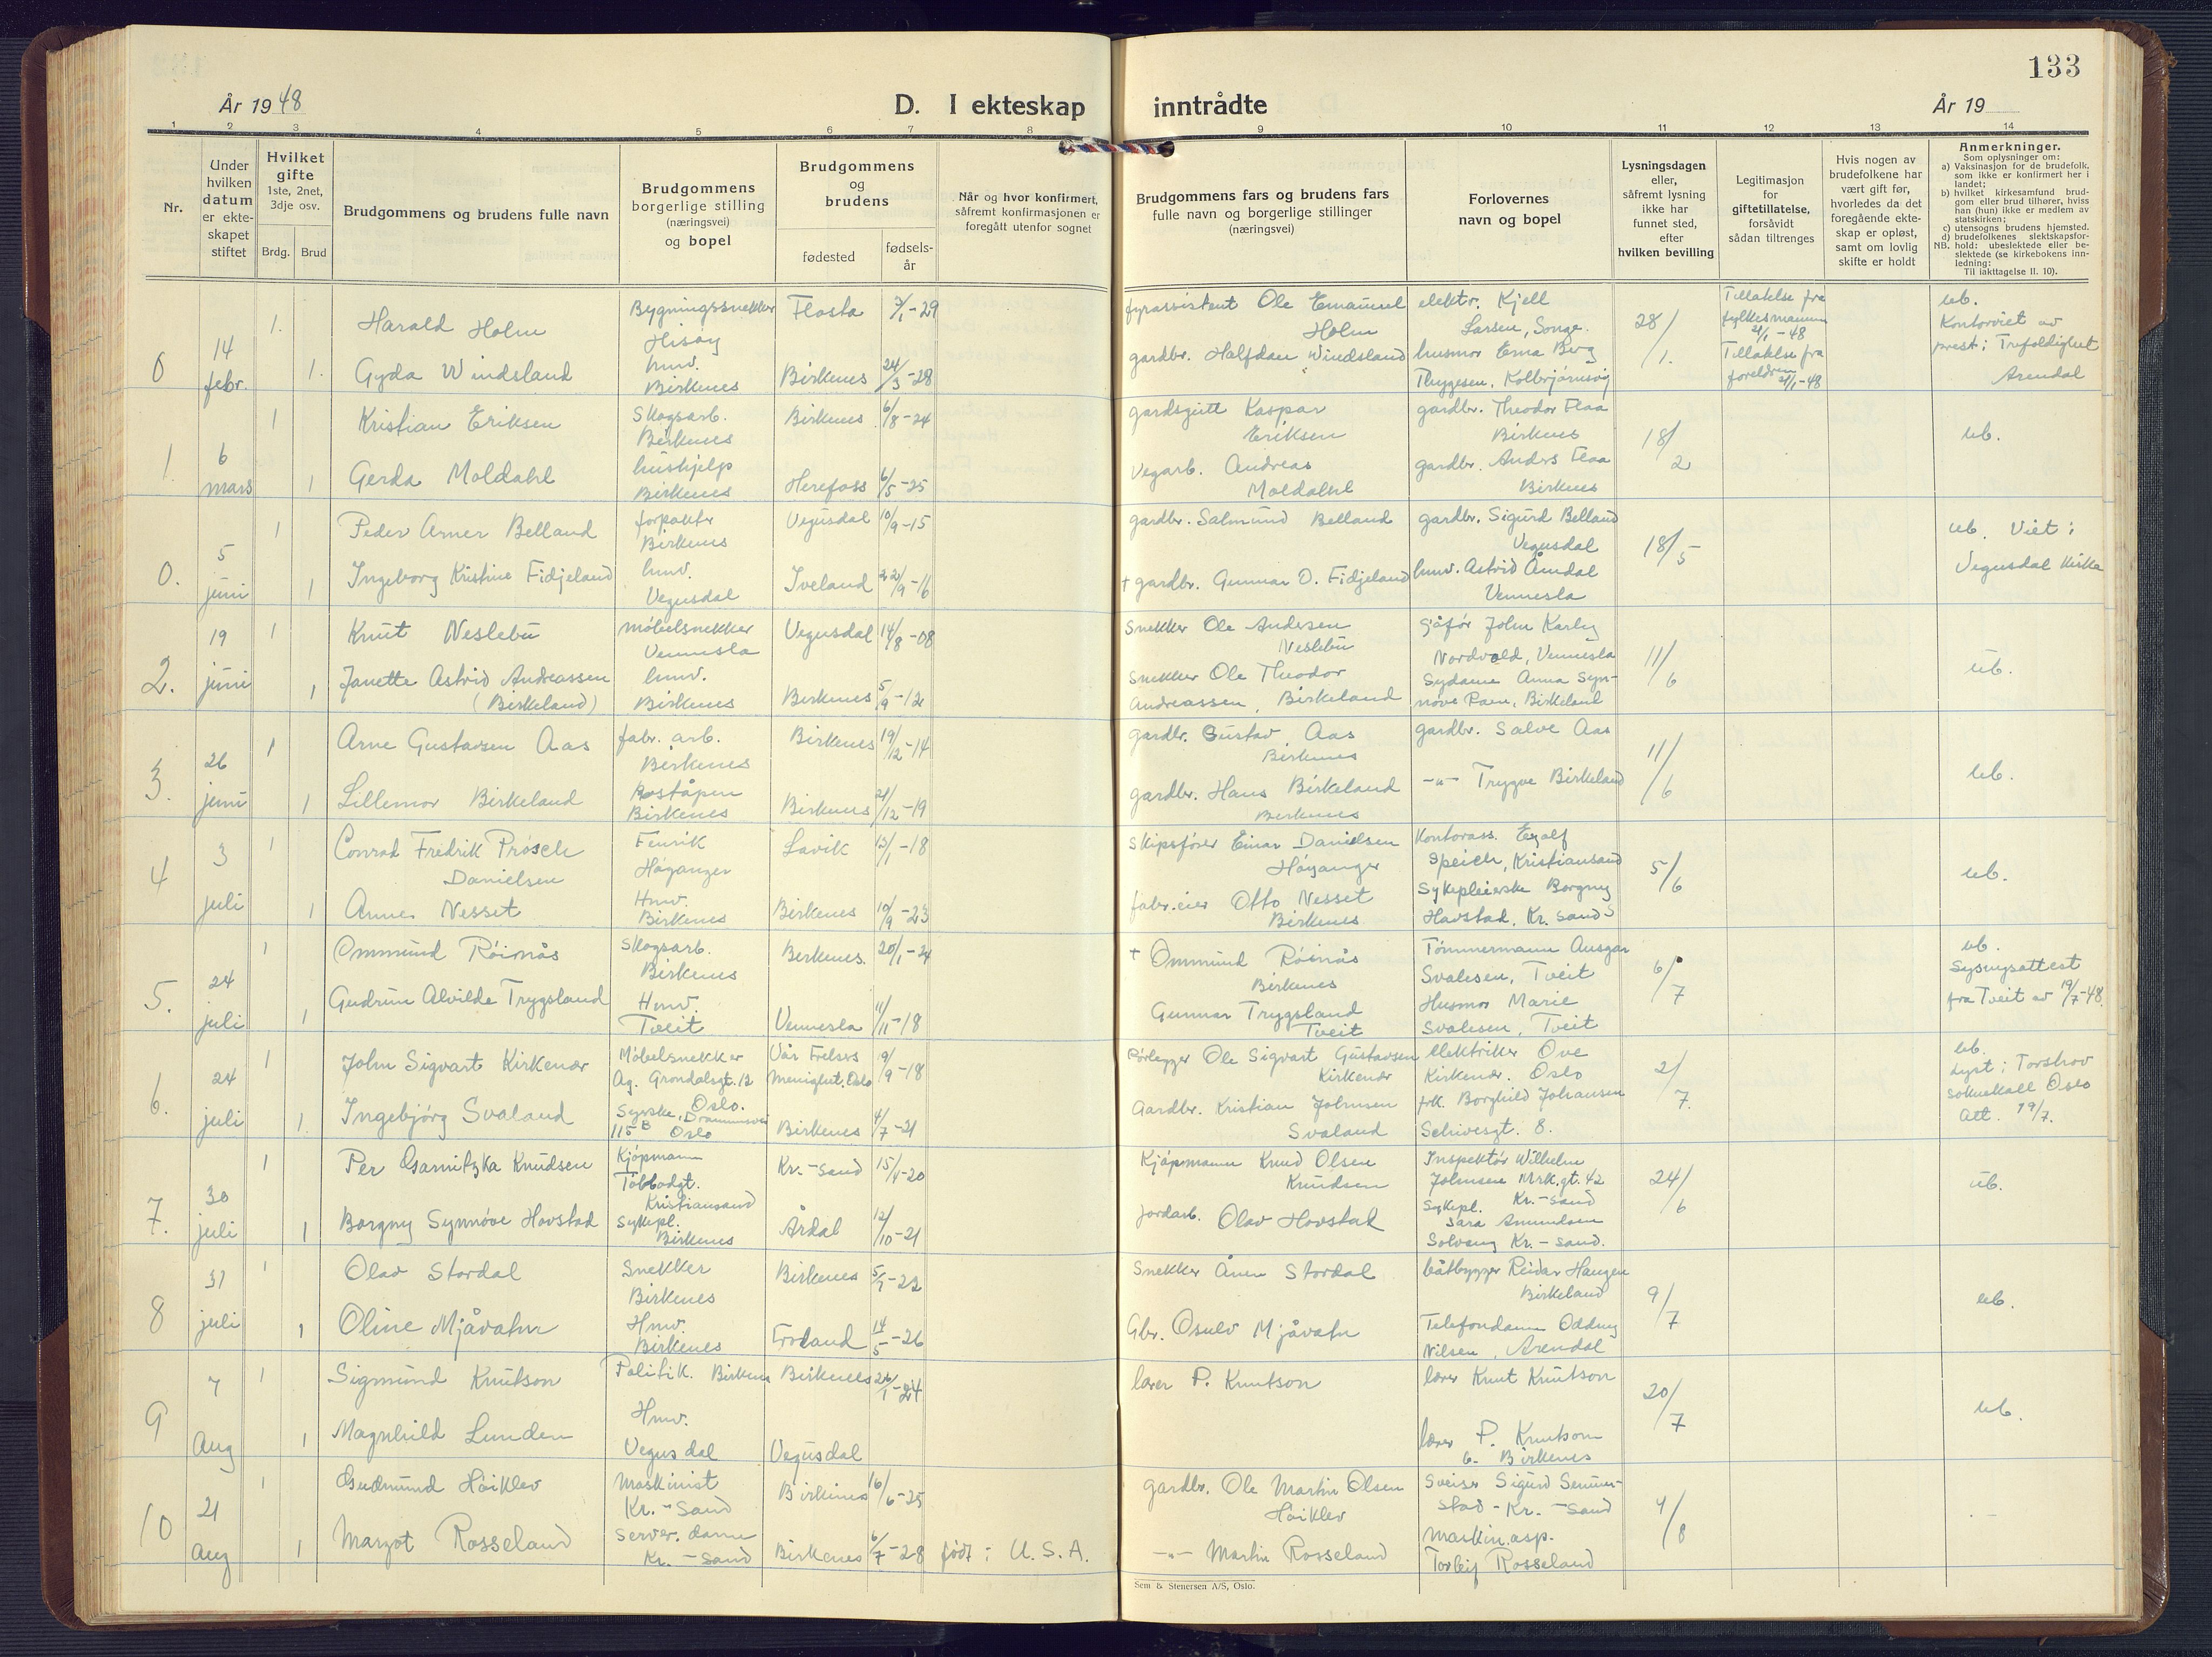 133
År 1948
D. I ekteskap inntrådte
År 19
1 2 3 4 5 6 7 8 9 10 11 12 13 14
Nr.
Under hvilken datum er ekteskapet stiftet
Hvilket gifte 1ste, 2net, 3dje osv.
Brdg. Brud
Brudgommens og brudens fulle navn
Brudgommens borgerlige stilling (næringsvei) og bopel
Brudgommens og brudens
fødested
fødselsår
Når og hvor konfirmert, såfremt konfirmasjonen er foregått utenfor sognet
Brudgommens fars og brudens fars fulle navn og borgerlige stillinger (næringsvei)
Forlovernes navn og bopel
Lysningsdagen eller, såfremt lysning ikke har funnet sted, efter hvilken bevilling
Legitimasjon for giftetillatelse, forsåvidt sådan tiltrenges
Hvis nogen av brudefolkene har vært gift før, hvorledes da det foregående ekteskap er opløst, samt om lovlig skifte er holdt
Anmerkninger.
Som oplysninger om:
a) Vaksinasjon for de brudefolk, som ikke er konfirmert her i landet;
b) hvilket kirkesamfund brudgom eller brud tilhører, hviss han (hun) ikke er medlem av statskirken;
c) utensogns brudens hjemsted.
d) brudefolkenes slektskapsforhold: ubeslektede eller beslektede (se kirkebokens innledning:
NB.
Til iakttagelse II. 10).
0 14 febr. 1. Harald Holm Bygningssnekker Hisøy Flosta 7/1-29 fyrassistent Ole Emanuel Holm elektr. Kjell Larsen, Songe. 28/1. Tillatelse fra fylkesmannen 21/1-48 ub. Kontorviet av prest i Trefoldighet Arendal
1. Gyda Windsland hmv. Birkenes Birkenes 24/3-28 gardbr. Halfdan Windsland husmor Erna Berg Thygesen, Kolbrjørnsvig Tillatelse fra foreldrene 21/1-48
1. 6 mars 1 Kristian Eriksen Skogsarb. Birkenes Birkenes 6/8-24 gardsgutt Kaspar Eriksen gardbr. Theodor Flaa Birkenes 18/2 ub.
1 Gerda Moldahl hushjelp Birkenes Herefoss 6/5-25 Vegarb. Andreas Moldahl gardbr. Anders Flaa Birknes
0. 5 juni 1 Peder Arner Belland forpakter Birkenes Vegusdal 10/9-15 gardbr. Salmund Belland gardbr. Sigurd Belland Vegusdal 18/5 ub. Viet i Vegusdal kirke
1 Ingeborg Kristine Fidjeland hmv. Vegusdal Iveland 22/9-16 + gardbr. Gunnar O. Fidjeland hmv. Astrid Åmdal Vennesla
2. 19 juni 1 Knut Neslebu møbelsnekker Vennesla Vegusdal 14/8-08 Snekker Ole Andersen Neslebu Sjåfør John Karby Nordvold, Vennesla 11/6 ub.
1 Janette Astrid Andreassen (Birkeland) hmv. Birkenes Birkenes 5/9-12 Snekker Ole Theodor Andreassen, Birkeland Sydame Anna Synnøve Paen, Birkeland
3. 26 juni 1 Arne Gustavsen Aas fabr. arb. Birkenes Birkenes 19/12-14 gardbr. Gustav Aas Birkenes gardbr. Salve Aas 11/6 ub.
1 Lillemor Birkeland Poståpen Birkenes Birkenes 21/12-19 gardbr. Hans Birkeland Birkenes -"- Trygve Birkeland
4 3 juli 1 Conrad Fredrik Prøsch Danielsen Fenrik Høyanger Lavik 13/1-18 Skipsfører Einar Danielsen Høyanger Kontorass. Egolf Speich, Kristiansand 5/6 ub.
1 Anne Nesset Hmv. Birkenes Birkenes 10/9-23 fabr.eier Otto Nesset Birkenes Sykepleierske Borgny Hovstad, Kr. sand S
5. 24 juli 1 Ommund Röinås Skogsarb. Birkenes Birkenes. 20/1-24 + Ommund Röinås Birkenes Tømmermann Ansgar Svalesen, Tveit 6/7 ub. Lysnysattest fra Tveit av 19/7-48.
1 Gudrun Alvilde Trygsland Hmv. Tveit Vennesla 11/11-18 Gunnar Trygsland Tveit Husmor Marie Svalesen, Tveit
6. 24 juli 1 John Sigvart Kirkenær Møbelsnekker Ag. Grøndalsgt. 12 Oslo. Vår Frelsers Menighet, Oslo 19/9-18 Rørlegger Ole Sigvart Gustavsen Kirkenær elektriker Ove Kirkenær. Oslo 2/7. ub. Lyst i Torshov soknekall Oslo Att. 19/7.
1. Ingebjørg Svaland Syerske, Drammensvei 115 B Oslo Birkenes 4/7-21 Gardbr. Kristian Johnsen Svaland frk. Borghild Johansen Schivesgt. 8.
7. 30 juli 1 Per Garnitzka Knudsen Kjøpmann Tobbodgt. Kristiansand Kr.-sand 15/4-20 Kjøpmann Knud Olsen Knudsen Inspektør Wilhelm Johnsen Mrk.gt. 42 Kr.-sand 24/6 ub.
1 Borgny Synnøve Hovstad Sykepl. Birkenes Årdal 12/10-21 Jordarb. Olav Hovstad Sykepl. Sara Amundsen Solveug Kr.-sand.
8 31 juli 1 Olav Stordal Snekker Birkenes Birkenes 5/7-22 Snekker Ånen Stordal båtbygger Reidar Haugen Birkeland 9/7 ub.
1 Oline Mjåvatn Hmv. Birkenes Froland 14/5-26 Gbr. Osulv Mjåvatn Telefondame Oddny Nilsen, Arendal
9 7 Aug 1 Sigmund Knutson Politik. Birkenes Birkenes 26/1-24 lærer P. Knutson lærer Knut Knutson 20/7 ub.
1 Magnhild Lunden Hmv. Vegusdal Vegusdal lærer P. Knutson Birkenes
10 21 Aug 1 Gudmund Höiklev Maskinist Kr.-Sand Birkenes 16/6-25 gardbr. Ole Martin Olsen Höiklev Sveiser Sigurd Kr.-Sand 4/8
1 Margot Rosseland Server. dame Kr.-Sand Birkenes 6/7-28 født i U.S.A. -"- Martin Rosseland maskin.asp. Torleif Rosseland
Sem & Stenersen A/S, Oslo.